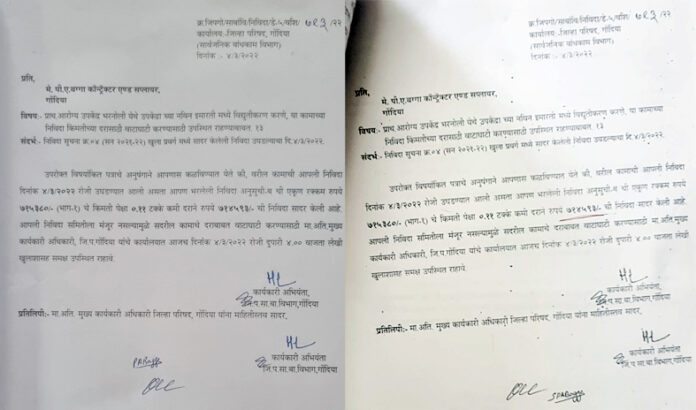 क्र.जिपगो/साबांवि/निविदा/डे-५/वशि/ ७१३ /२२
कार्यालय :-जिल्हा परिषद, गोंदिया
(सार्वजनिक बांधकाम विभाग)
दिनांक :- ४/३/२०२२
प्रति,
मे. पी.ए.बग्गा कॉन्ट्रॅक्टर एण्ड सप्लायर,
गोंदिया
विषय:- प्राथ.आरोग्य उपकेंद्र भरनोली येथे उपकेंद्रा च्या नविन इमारती मध्ये विद्युतीकरण करणे, या कामाच्या
निविदा किमतीच्या दरासाठी वाटाघाटी करण्यासाठी उपस्थित राहण्याबाबत. १३
संदर्भ:- निविदा सुचना क्र.०४ (सन २०२१-२२) खुला प्रवर्ग मध्ये सादर केलेली निविदा उघडल्याचा दि.४/३/२०२२.
उपरोक्त विषयांकित पत्राचे अनुषंगाने आपणास कळविण्यात येते की, वरील कामाची आपली निविदा
दिनांक ४/३/२०२२ रोजी उघडण्यात आली असता आपण भरलेली निविदा अनुसुची.ब ची एकुण रक्कम रुपये
७१५३८०/- (भाग-१) चे किमती पेक्षा ०.११ टक्के कमी दराने रुपये ७१४५९३/- ची निविदा सादर केली आहे.
आपली निविदा समितीला मंजुर नसल्यामुळे सदरील कामाचे दराबाबत वाटाघाटी करण्यासाठी मा.अति.मुख्य
कार्यकारी अधिकारी, जि.प.गोंदिया यांचे कार्यालयात आजच दिनांक ४/३/२०२२ रोजी दुपारी ४.०० वाजता लेखी
खुलाशासह समक्ष उपस्थित रहावे.
कार्यकारी अभियंता,
जि.प.सा.बा.विभाग,गोंदिया
प्रतिलिपी:- मा.अति. मुख्य कार्यकारी अधिकारी जिल्हा परिषद, गोंदिया यांना माहितीस्तव सादर.
कार्यकारी अभियंता
जि.प.सा.बा.विभाग,गोंदिया
क्र.जिपगो/साबांवि/निविदा/डे-५/वशि/ ७१३ /२२
कार्यालय :-जिल्हा परिषद, गोंदिया
(सार्वजनिक बांधकाम विभाग)
दिनांक :- ४/३/२०२२
प्रति,
मे. पी.ए.बग्गा कॉन्ट्रॅक्टर एण्ड सप्लायर,
गोंदिया
विषय:- प्राथ.आरोग्य उपकेंद्र भरनोली येथे उपकेंद्रा च्या नविन इमारती मध्ये विद्युतीकरण करणे, या कामाच्या
निविदा किमतीच्या दरासाठी वाटाघाटी करण्यासाठी उपस्थित राहण्याबाबत. १३
संदर्भ:- निविदा सुचना क्र.०४ (सन २०२१-२२) खुला प्रवर्ग मध्ये सादर केलेली निविदा उघडल्याचा दि.४/३/२०२२.
उपरोक्त विषयांकित पत्राचे अनुषंगाने आपणास कळविण्यात येते की, वरील कामाची आपली निविदा
दिनांक ४/३/२०२२ रोजी उघडण्यात आली असता आपण भरलेली निविदा अनुसुची.ब ची एकुण रक्कम रुपये
७१५३८०/- (भाग-१) चे किमती पेक्षा ०.११ टक्के कमी दराने रुपये ७१४५९३/- ची निविदा सादर केली आहे.
आपली निविदा समितीला मंजुर नसल्यामुळे सदरील कामाचे दराबाबत वाटाघाटी करण्यासाठी मा.अति.मुख्य
कार्यकारी अधिकारी, जि.प.गोंदिया यांचे कार्यालयात आजच दिनांक ४/३/२०२२ रोजी दुपारी ४.०० वाजता लेखी
खुलाशासह समक्ष उपस्थित रहावे.
कार्यकारी अभियंता,
जि.प.सा.बा.विभाग,गोंदिया
प्रतिलिपी:- मा.अति. मुख्य कार्यकारी अधिकारी जिल्हा परिषद, गोंदिया यांना माहितीस्तव सादर.
कार्यकारी अभियंता
जि.प.सा.बा.विभाग,गोंदिया